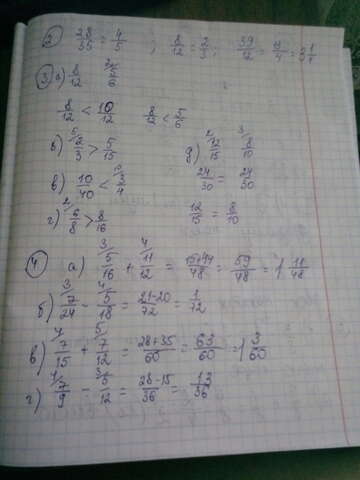 2) 28/35 = 4/5 ; 8/12 = 2/3 ; 39/12 = 13/4 = 3 1/4
3) а) 8/12 5/6
8/12 < 10/12 8/12 < 5/6
б) 2/3 > 5/15 д) 12/15 8/10
в) 10/40 < 3/4 24/30 = 24/30
г) 6/8 > 8/16 12/15 = 8/10
4. а) 5/16 + 11/12 = 15+44/48 = 59/48 = 1 11/48
б) 7/24 - 5/18 = 21-20/72 = 1/72
в) 7/15 + 7/12 = 28+35/60 = 63/60 = 1 3/60
г) 7/9 - 5/12 = 28-15/36 = 13/36